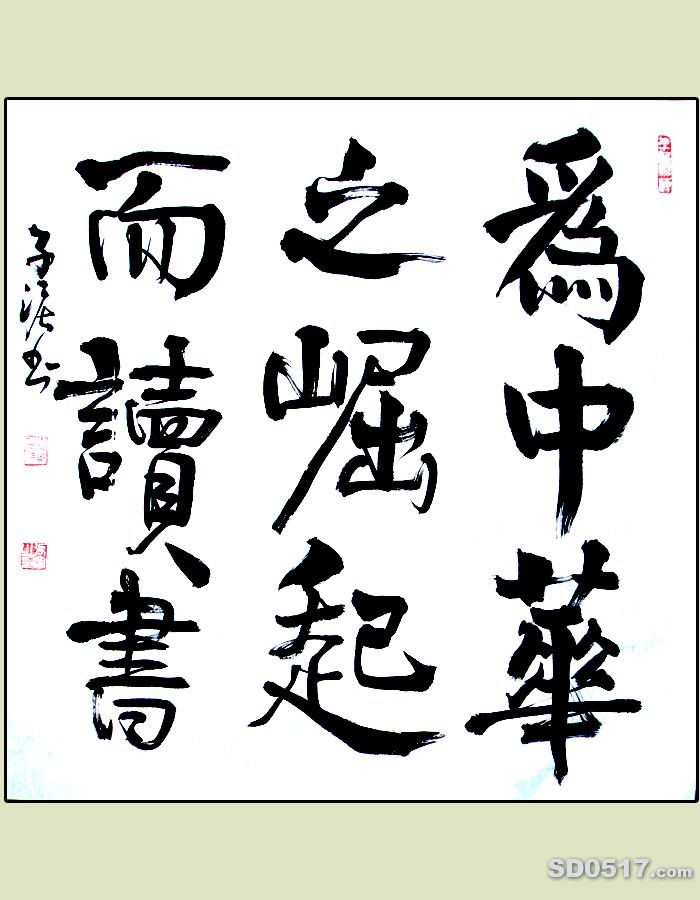 為中華
之崛起
而讀書
SD0517.com